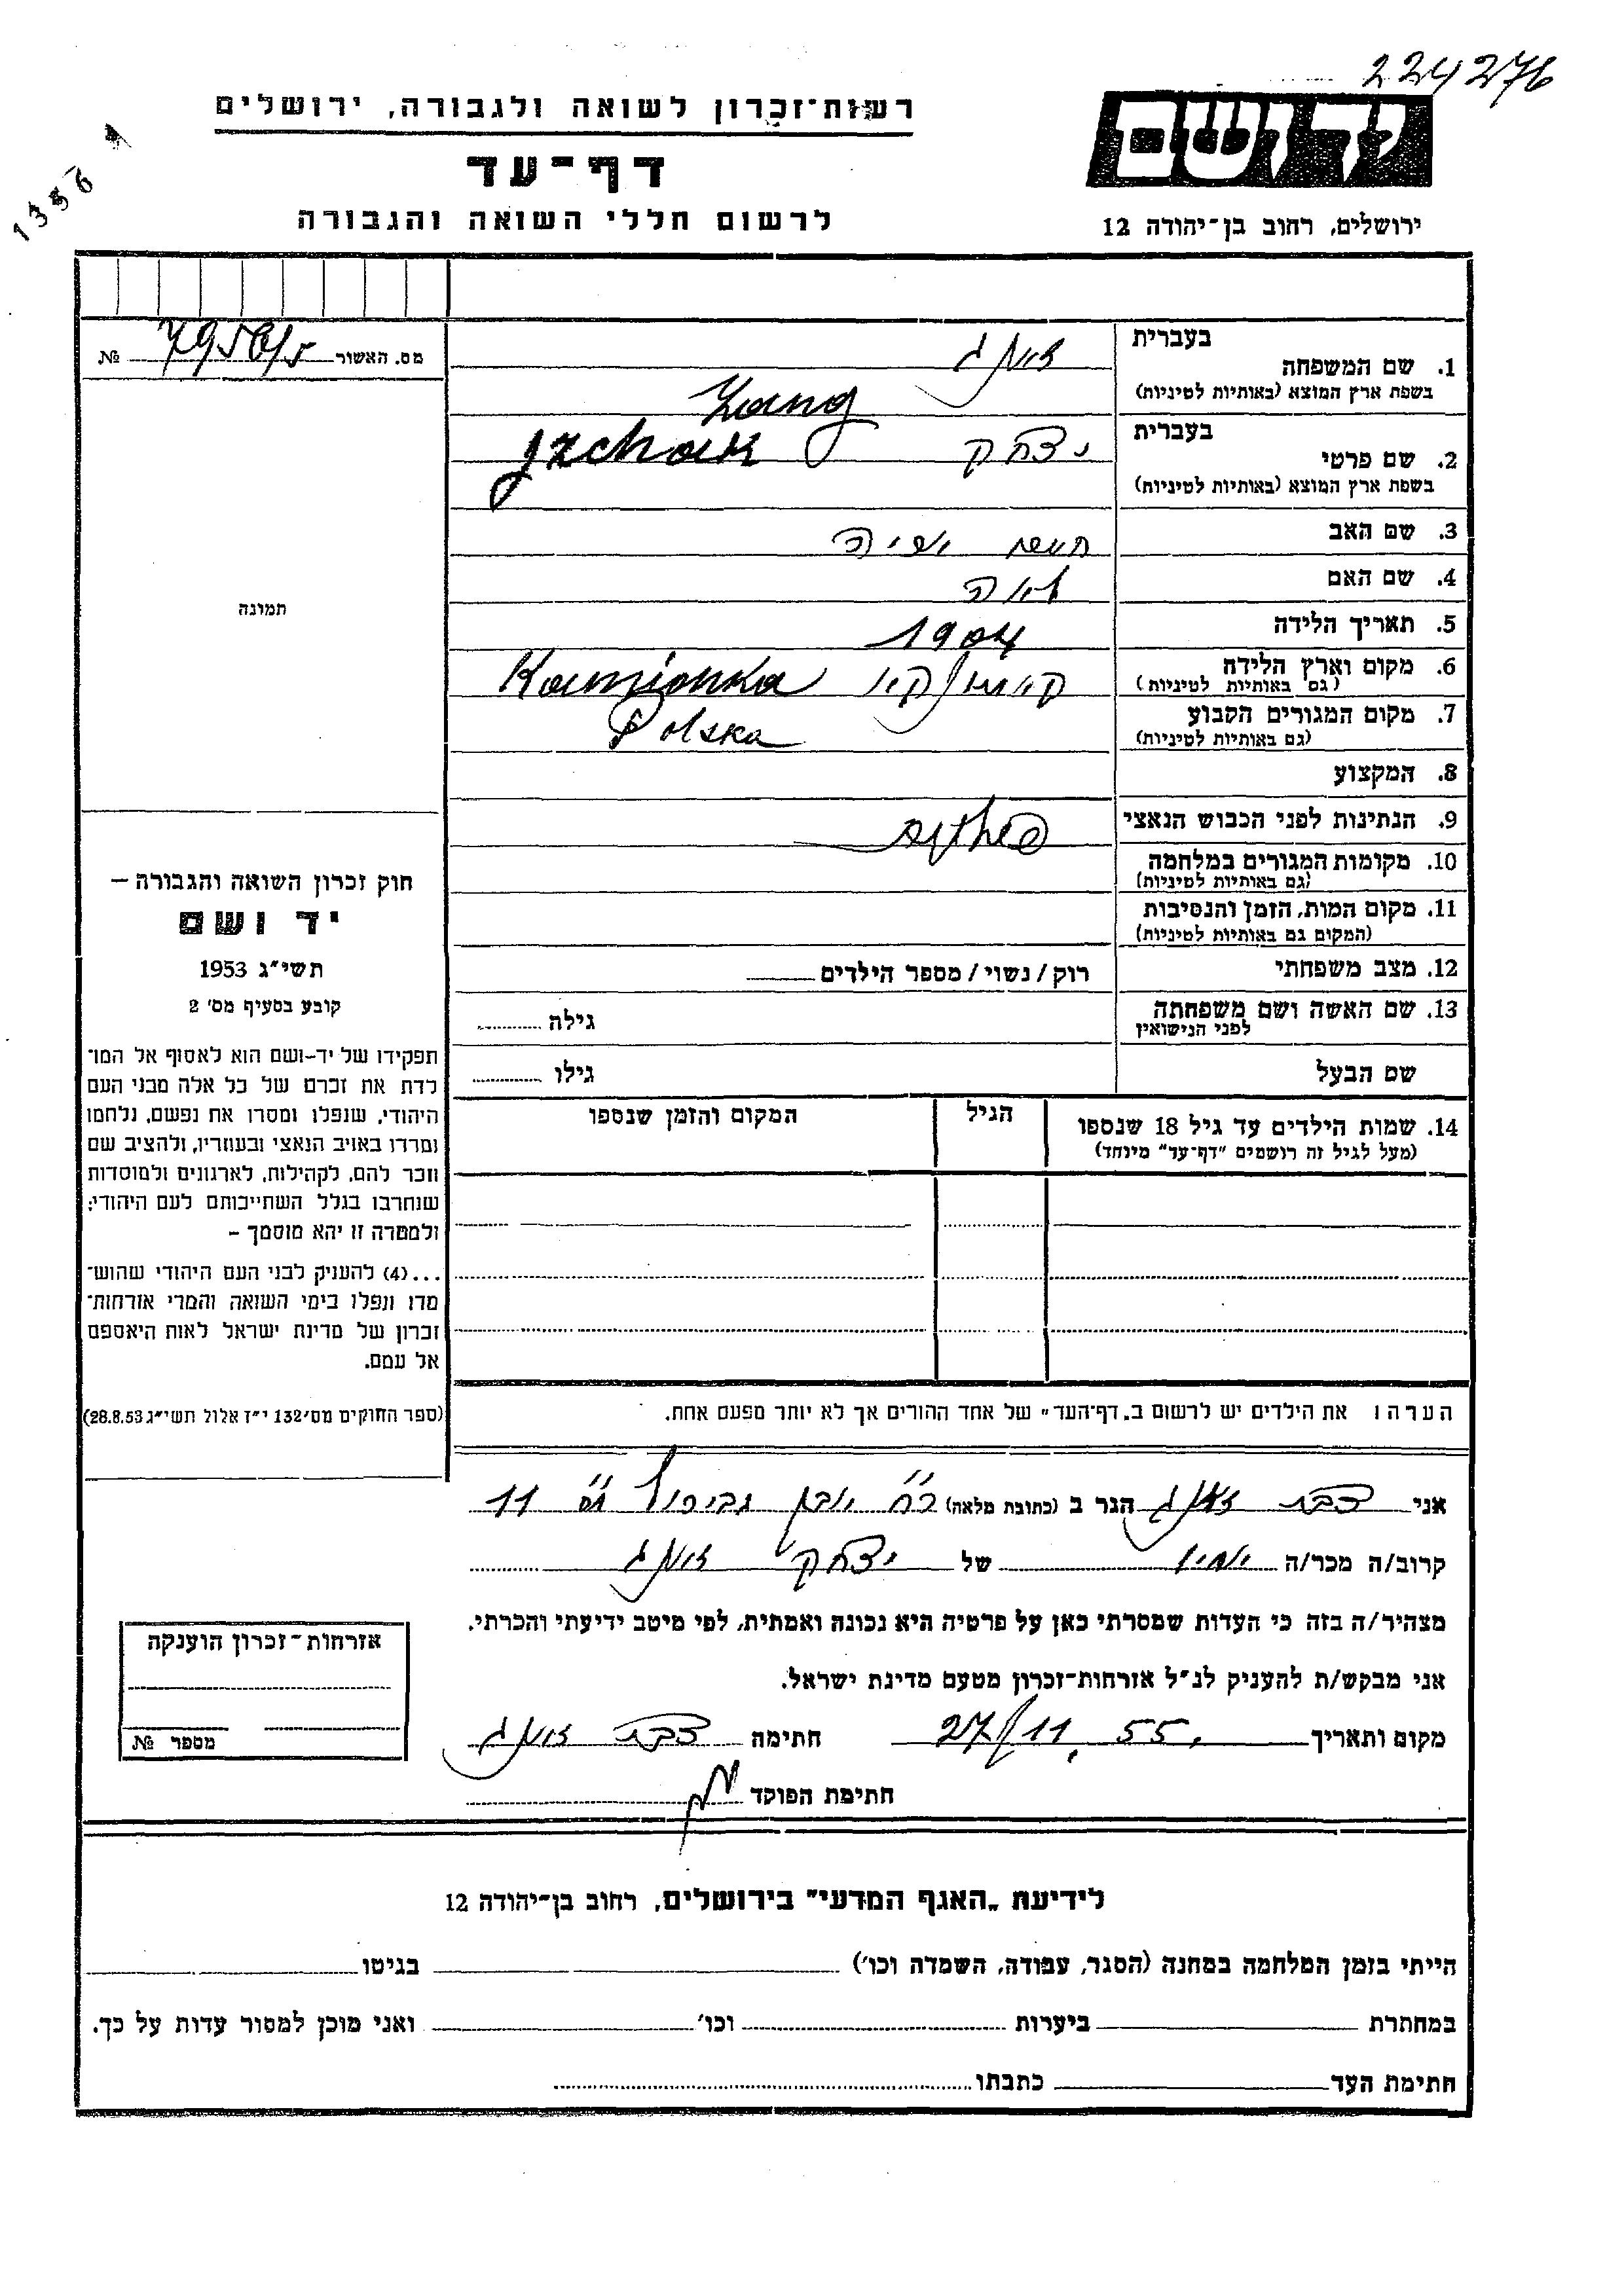 224276
1356
יד ושם
רשות־זכרון לשואה ולגבורה, ירושלים
דף־עד
לרשום חללי השואה והגבורה
ירושלים, רחוב בן־יהודה 12
מס. האשור №
בעברית
1. שם המשפחה זאנג
בשפת ארץ המוצא (באותיות לטיניות) Zang
בעברית
2. שם פרטי יצחק Jzchak
בשפת ארץ המוצא (באותיות לטיניות)
3. שם האב
4. שם האם לאה
5. תאריך הלידה 1904
6. מקום וארץ הלידה Kamionka
(גם באותיות לטיניות)
7. מקום המגורים הקבוע Polska
(גם באותיות לטיניות)
8. המקצוע
9. הנתינות לפני הכבוש הנאצי
10. מקומות המגורים במלחמה
(גם באותיות לטיניות)
11. מקום המות, הזמן והנסיבות
(המקום גם באותיות לטיניות)
12. מצב משפחתי רוק/נשוי/מספר הילדים
13. שם האשה ושם משפחתה
לפני הנישואין גילה
שם הבעל גילו
14. שמות הילדים עד גיל 18 שנספו הגיל המקום והזמן שנספו
(מעל לגיל זה רושמים "דף־עד" מיוחד)
הערה: את הילדים יש לרשום ב„דף־העד" של אחד ההורים אך לא יותר מפעם אחת.
תמונה
חוק זכרון השואה והגבורה —
יד ושם
תשי"ג 1953
קובע בסעיף מס' 2
תפקידו של יד-ושם הוא לאסוף אל המו־
לדת את זכרם של כל אלה מבני העם
היהודי, שנפלו ומסרו את נפשם, נלחמו
ומרדו באויב הנאצי ובעוזריו, ולהציב שם
וזכר להם, לקהילות, לארגונים ולמוסדות
שנחרבו בגלל השתייכותם לעם היהודי;
ולמטרה זו יהא מוסמך –
...(4) להעניק לבני העם היהודי שהוש־
מדו ונפלו בימי השואה והמרי אזרחות־
זכרון של מדינת ישראל לאות היאספם
אל עמם.
(ספר החוקים מס' 132 י"ז אלול תשי"ג 28.8.53)
אני זאנג הגר ב (כתובת מלאה) 11
קרוב/ה מכר/ה של יצחק זאנג
מצהיר/ה בזה כי העדות שמסרתי כאן על פרטיה היא נכונה ואמתית, לפי מיטב ידיעתי והכרתי.
אני מבקש/ת להעניק לנ"ל אזרחות־זכרון מטעם מדינת ישראל.
מקום ותאריך 27/11.55 חתימה זאנג
חתימת הפוקד
אזרחות־זכרון הוענקה
מספר №
לידיעת „האגף המדעי" בירושלים, רחוב בן־יהודה 12
הייתי בזמן המלחמה במחנה (הסגר, עבודה, השמדה וכו') בגיטו
במחתרת ביערות וכו' ואני מוכן למסור עדות על כך.
חתימת העד כתבתו